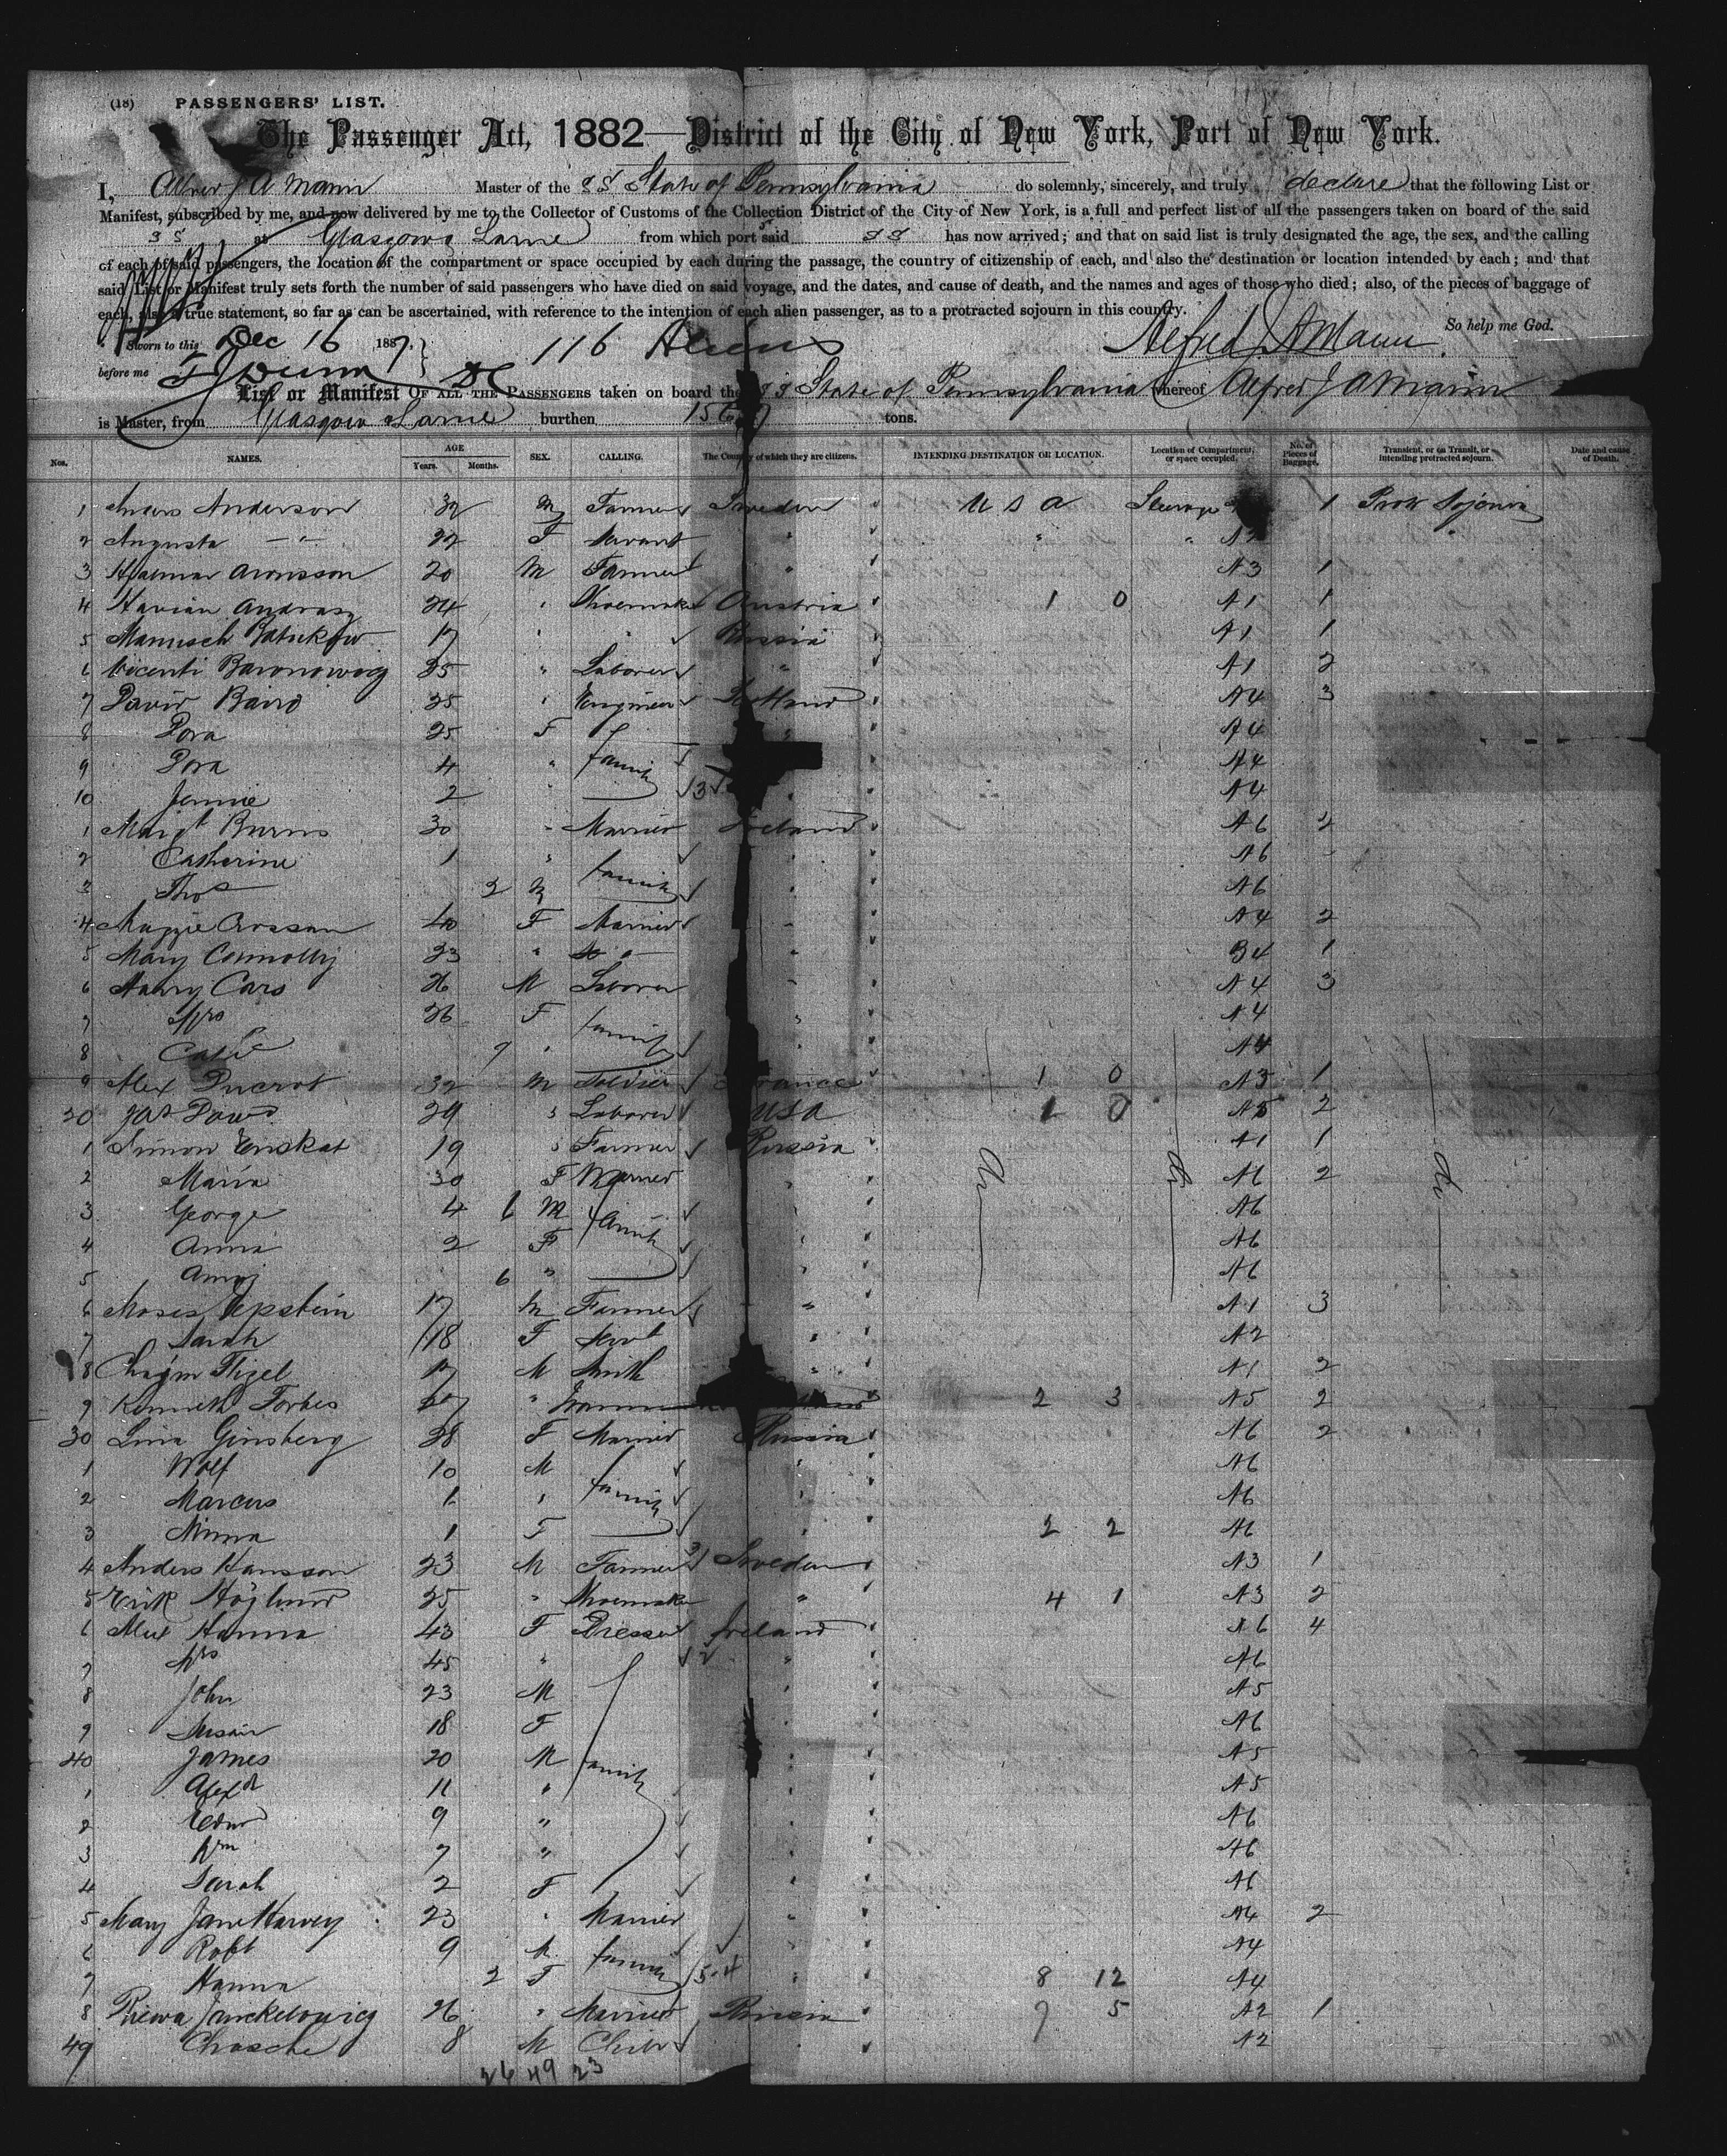 (18) PASSENGERS' LIST.
The Passenger Act, 1882—District of the City of New York, Port of New York.
I, Alfred J A Mann Master of the SS State of Pennsylvania do solemnly, sincerely, and truly declare that the following List or
Manifest, subscribed by me, and now delivered by me to the Collector of Customs of the Collection District of the City of New York, is a full and perfect list of all the passengers taken on board of the said
SS at Glasgow & Larne from which port said SS has now arrived; and that on said list is truly designated the age, the sex, and the calling
of each of said passengers, the location of the compartment or space occupied by each during the passage, the country of citizenship of each, and also the destination or location intended by each; and that
said List or Manifest truly sets forth the number of said passengers who have died on said voyage, and the dates, and cause of death, and the names and ages of those who died; also, of the pieces of baggage of
each, also a true statement, so far as can be ascertained, with reference to the intention of each alien passenger, as to a protracted sojourn in this country.
So help me God.
Sworn to this Dec 16 1887. 116 Aliens Alfred J A Mann
before me
List or Manifest OF ALL THE PASSENGERS taken on board the SS State of Pennsylvania whereof Alfred J A Mann
is Master, from Glasgow & Larne burthen tons.
Nos. NAMES. AGE Years. Months. SEX. CALLING. The Country of which they are citizens. INTENDING DESTINATION OR LOCATION. Location of Compartment or space occupied. No. of Pieces of Baggage. Transient, or in Transit, or intending protracted sojourn. Date and cause of Death.
1 Anderson 32 M Farmer Sweden U S A Steerage 1 Prot Sojourn
2 Augusta —"— 22 F Servant " " " A2
3 Hjalmar Aronsson 20 M Farmer " A3 1
4 Andrasz 24 " Shoemaker Austria 1 0 A1 1
5 17 " " Russia A1 1
6 Vicenti 25 " Laborer " A1 2
7 David Baird 25 " Engineer Scotland A4 3
8 Dora 25 F A4
9 Dora 4 " family A4
10 Jennie 2 " 3 " A4
1 Margt Burns 30 " Married Ireland A6 2
2 Catherine 1 " " A6
3 Thos 2 M family " A6
4 Maggie Crossan 40 F Married " A4 2
5 Mary Connolly 23 " " B4 1
6 Harry Cars 26 M Laborer " A4 3
7 Mrs 26 F family " A4
8 7 " " A4
9 Alex Ducrot 32 M Soldier France 1 0 A5 1
20 Jas 29 " Laborer USA 1 0 A5 2
1 Simon Enskat 19 " Farmer Russia A1 1
2 Maria 30 F Married " A6 2
3 George 4 6 M family " A6
4 Anna 2 F " A6
5 6 " " A6
6 Moses Epstein 17 M Farmer " A1 3
7 Sarah 18 F Servt " A2
8 Chajm Figel 17 M Smith " A1 2
9 Kenneth Forbes " 2 3 A5 2
30 Lina Ginsberg 28 F Married Russia A6 2
1 Wolf 10 M " A6
2 Marcus 1 " family " A6
3 Minna 1 F " 2 2 A6
4 Anders Hansson 23 M Farmer Sweden A3 1
5 Erik Höglund 25 " Shoemaker " 4 1 A3 2
6 Alex Hanna 43 F Presser Ireland A6 4
7 Mrs 45 " " A6
8 John 23 M " A5
9 Susan 18 F " A6
40 James 20 M family " A5
1 Alexdr 11 " " A5
2 Edwd 9 " " A6
3 Wm 7 " " A6
4 Sarah 2 F " A6
5 Mary Jane Harvey 23 " Married " A4 2
6 Robt 9 M family " A4
7 Hanna 2 F 5-4 " 8 12 A4
8 Janckelowicz 26 " Married Russia 7 5 A2 1
49 Chasche 8 M Child " A2
26 49 23